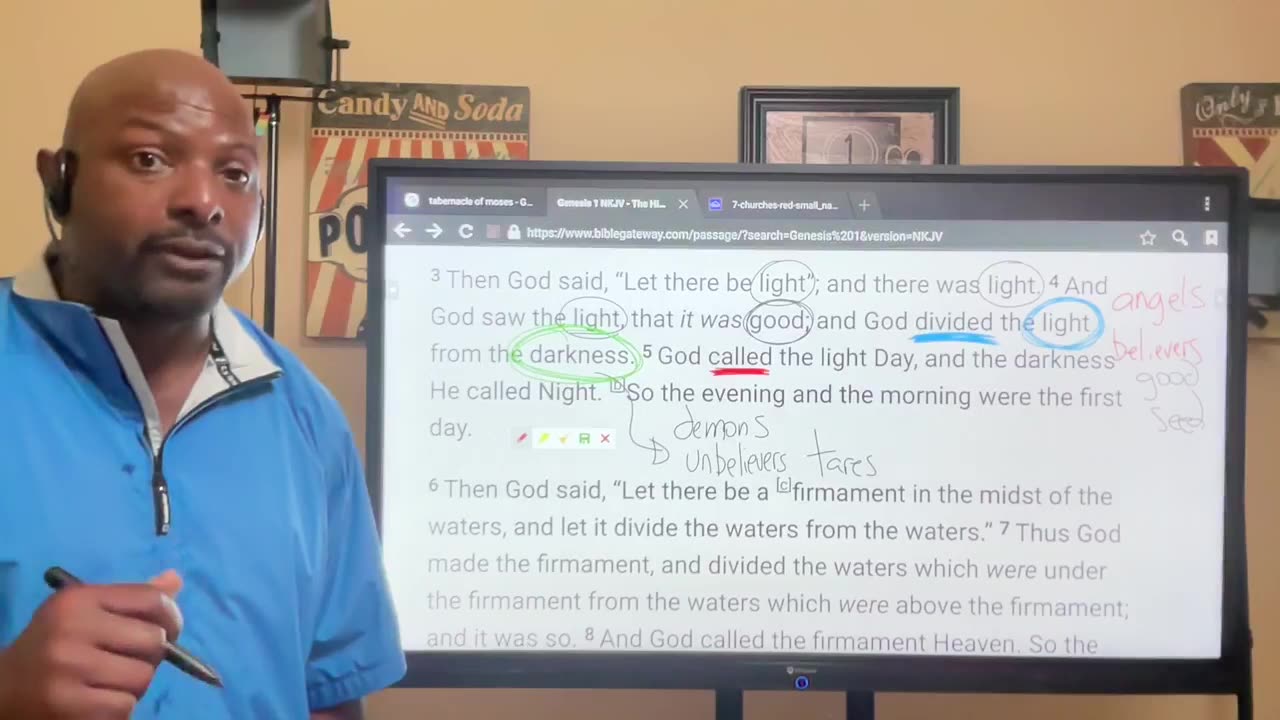 Candy AND Soda
PO
1
Only
tabernacle of moses - G...
Genesis 1 NKJV - The Hi...
7-churches-red-small_na...
https://www.biblegateway.com/passage/?search=Genesis%201&version=NKJV
3 Then God said, “Let there be light”; and there was light. 4 And
God saw the light, that it was good; and God divided the light
from the darkness. 5 God called the light Day, and the darkness
He called Night. [b]So the evening and the morning were the first
day.
angels
believers
good
seed
demons
unbelievers tares
6 Then God said, “Let there be a [c]firmament in the midst of the
waters, and let it divide the waters from the waters.” 7 Thus God
made the firmament, and divided the waters which were under
the firmament from the waters which were above the firmament;
and it was so. 8 And God called the firmament Heaven. So the